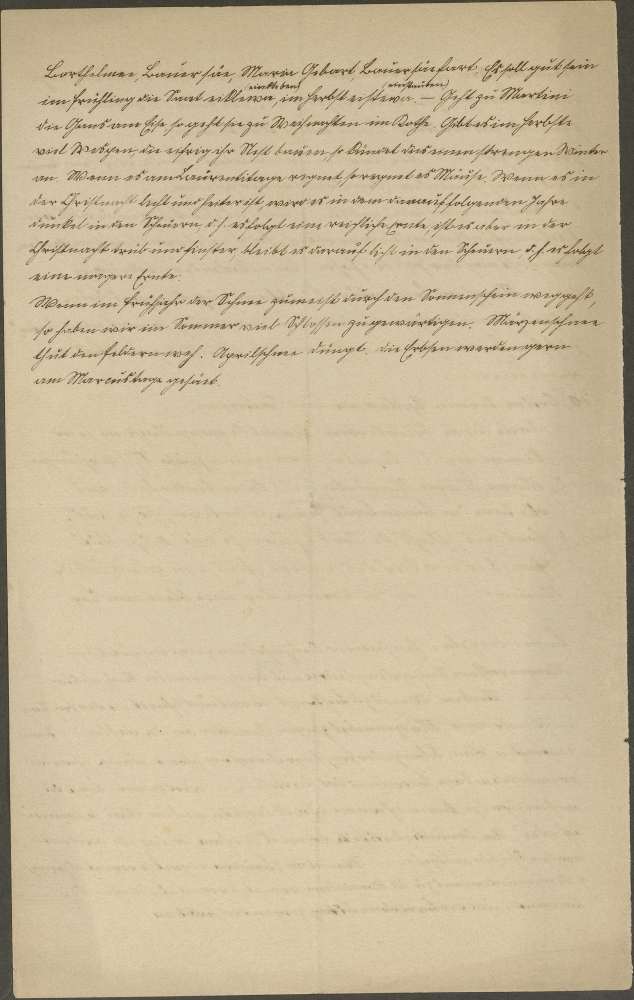 Barthelmee, Bauer säe, Maria Gebart, Bauer säe fart. Es soll gut sein
einkleiben einstauben
im Frühling die Saat eikliewa, im Herbst eistewa. — Geht zu Martini
die Gans am Eise so geht sie zu Weihnachten im Kothe. Gibt es im Herbste
viel Wespen, die eifrig ihr Nest bauen, so kündet dies einen strengen Winter
an. Wenn es am Laurentitage regnet so regnet es Mäuse. Wenn es in
der Christnacht licht und heiter ist, wird es in dem darauf folgenden Jahre
dunkel in den Scheuern, d. h. es folgt eine reichliche Ernte, ist es aber in der
Christnacht trüb und finster, bleibt es darauf licht in den Scheuern d. h. es folgt
eine magere Ernte.
Wenn im Frühjahr der Schnee zumeist durch den Sonnenschein weggeht,
so haben wir im Sommer viel Schlossen zu gewärtigen. Märzenschnee
thut den Feldern weh. Aprilschnee düngt. Die Erbsen werden gern
am Marcustage gesäet.